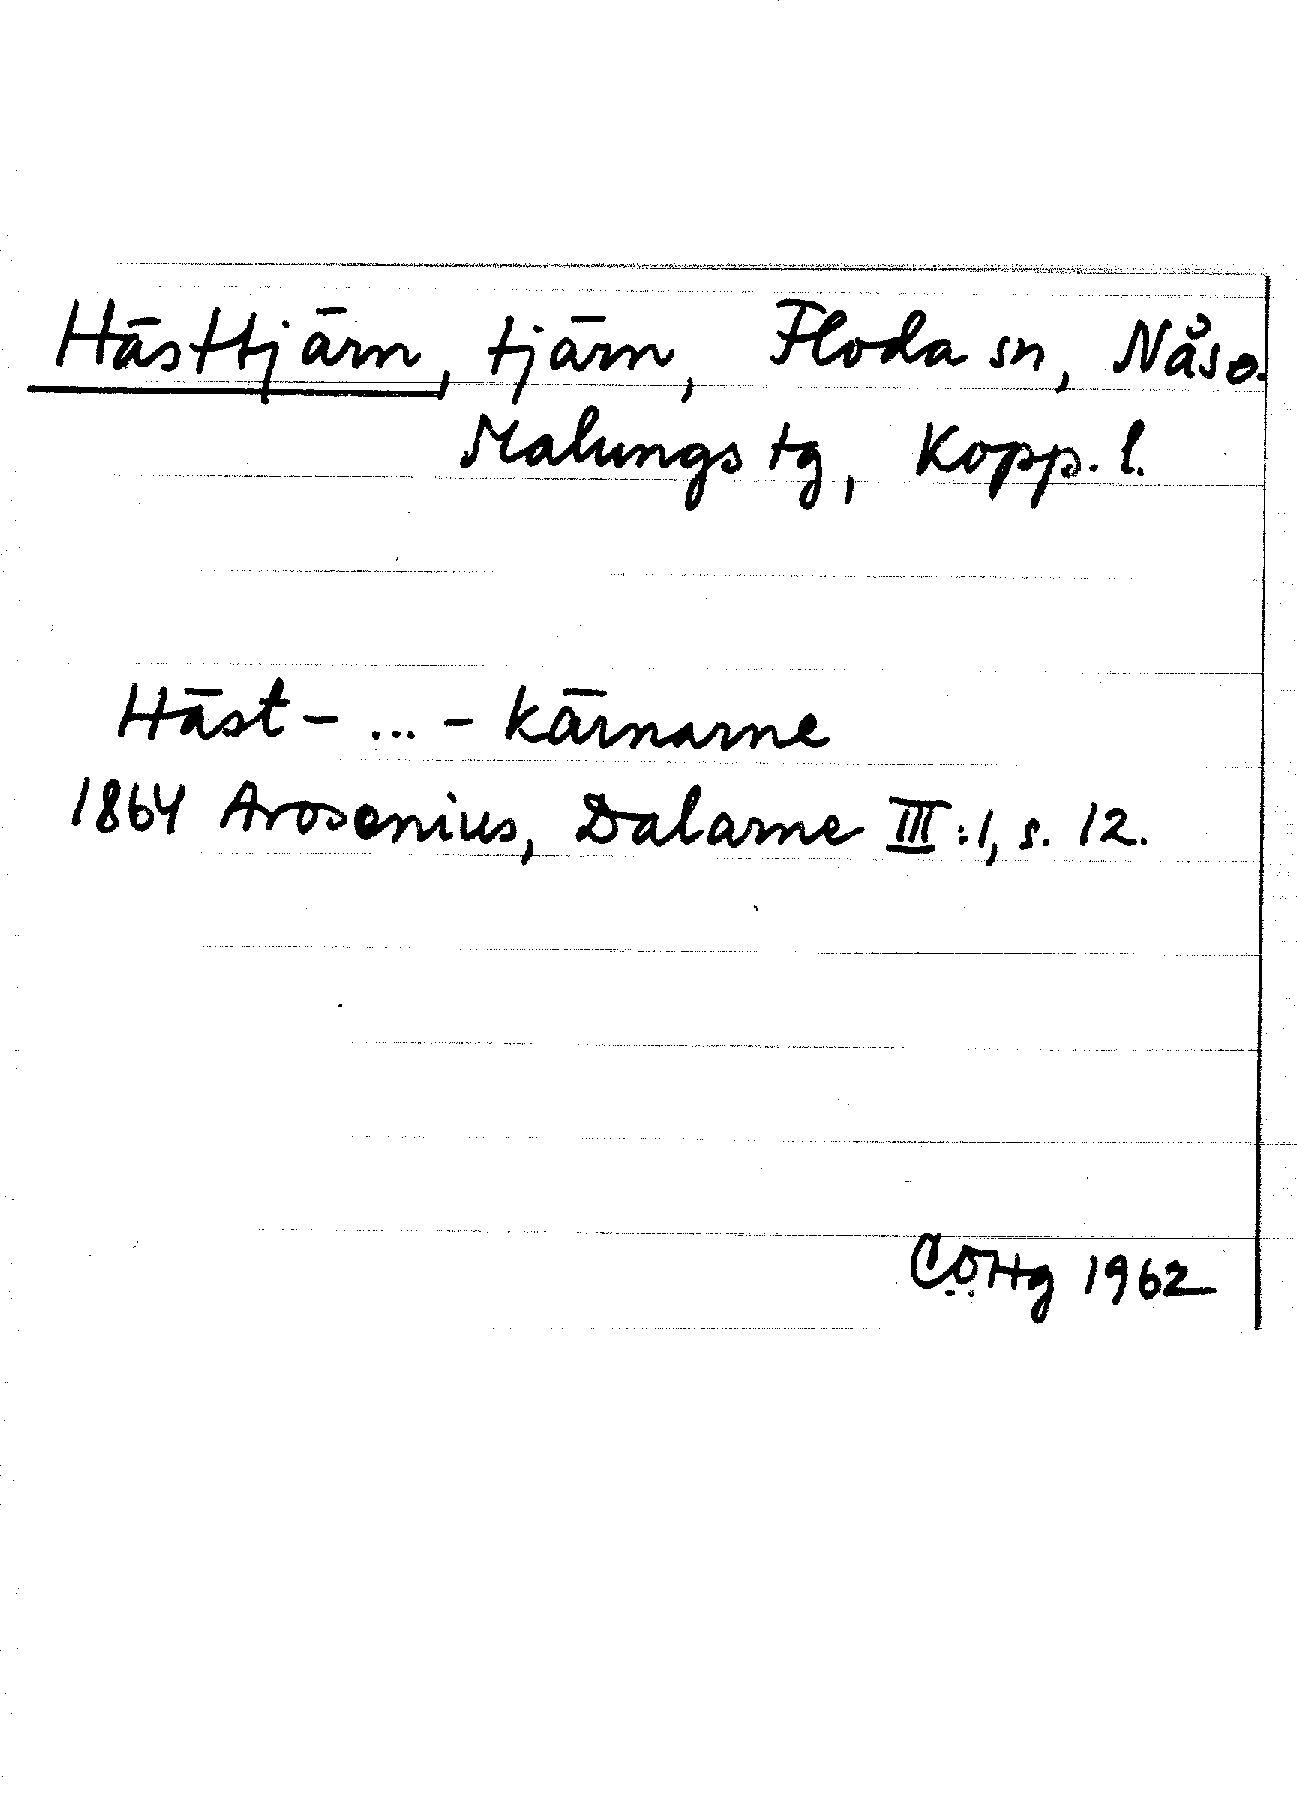 Hästtjärn, tjärn, Floda sn, Nås o.
Malungs tg, Kopp. l.
Häst- ... - kärnarne
1864 Arosenius, Dalarne III:1, s. 12.
CÖHg 1962